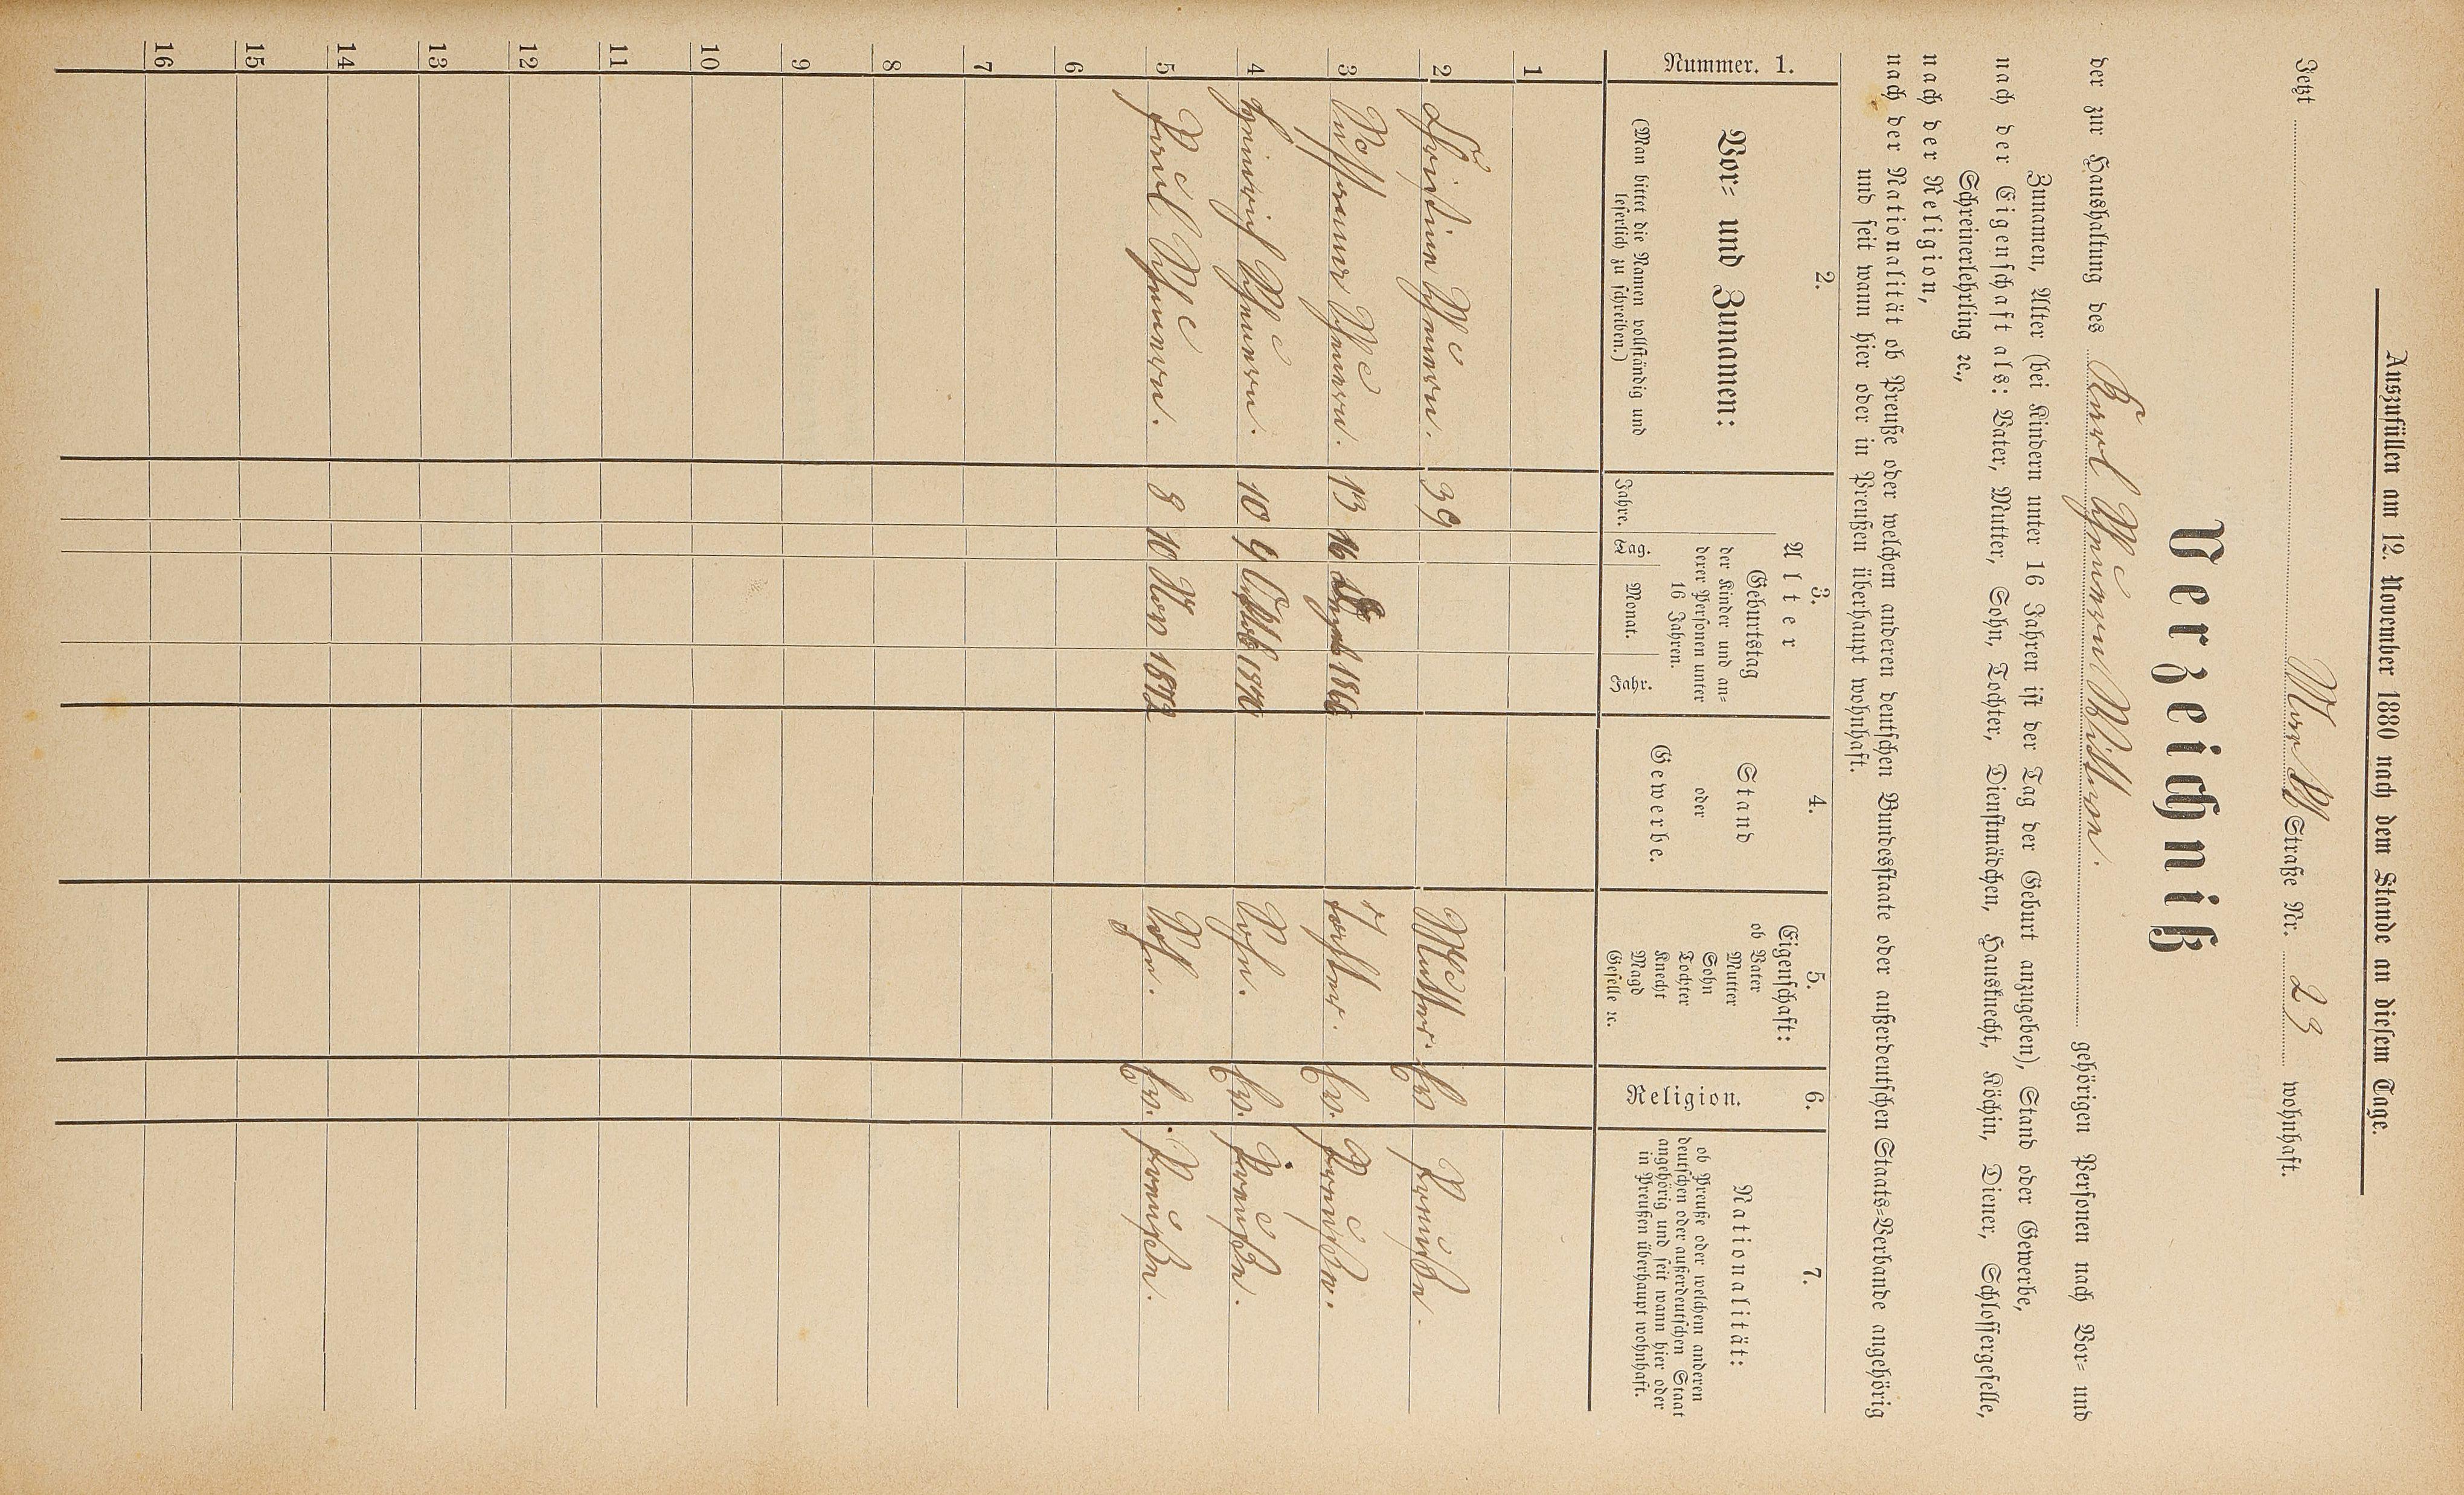 Auszufüllen am 12. November 1880 nach dem Stande an diesem Tage.
Jetzt Straße Nr. 23 wohnhaft.
Verzeichniß
der zur Haushaltung des Karl Wittwe. gehörigen Personen nach Vor- und
Zunamen, Alter (bei Kindern unter 16 Jahren ist der Tag der Geburt anzugeben), Stand oder Gewerbe,
nach der Eigenschaft als: Vater, Mutter, Sohn, Tochter, Dienstmädchen, Hausknecht, Köchin, Diener, Schlossergeselle,
Schreinerlehrling ꝛc.,
nach der Religion,
nach der Nationalität ob Preuße oder welchem anderen deutschen Bundesstaate oder außerdeutschen Staats-Verbande angehörig
und seit wann hier oder in Preußen überhaupt wohnhaft.
Nummer. 1.
2.
Vor- und Zunamen:
(Man bittet die Namen vollständig und
leserlich zu schreiben.)
3.
Alter
Jahre.
Geburtstag
der Kinder und an-
derer Personen unter
16 Jahren.
Tag.
Monat.
Jahr.
4.
Stand
oder
Gewerbe.
5.
Eigenschaft:
ob Vater
Mutter
Sohn
Tochter
Knecht
Magd
Geselle ꝛc.
6.
Religion.
7.
Nationalität:
ob Preuße oder welchem anderen
deutschen oder außerdeutschen Staat
angehörig und seit wann hier oder
in Preußen überhaupt wohnhaft.
1
2 Christine 39 Mutter. Ev Preußen.
3 13 16 1866 Tochter. Ev. Preußen.
4 Heinrich 10 9 Oktob 1870 Sohn. Ev. Preußen.
5 Paul 8 10 Nov 1872 Sohn. Ev. Preußen.
6
7
8
9
10
11
12
13
14
15
16